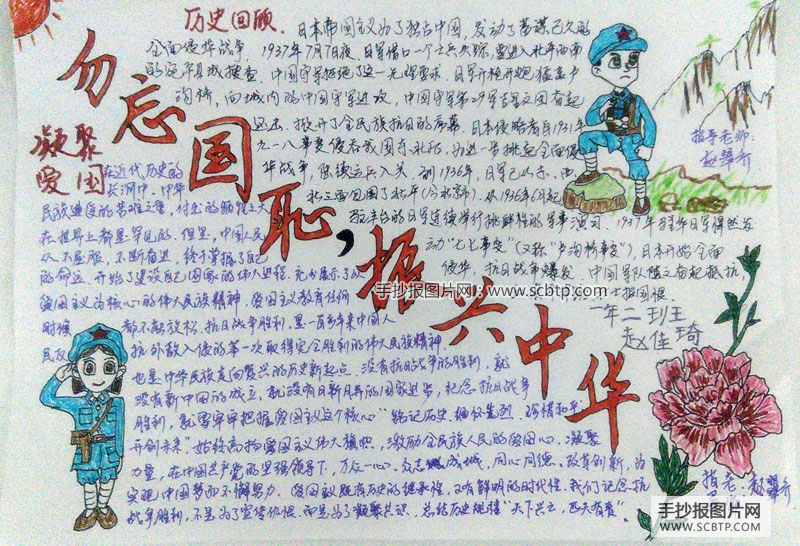 历史回顾
日本帝国主义为了独占中国,发动了蓄谋已久的
全面侵华战争。1937年7月7日夜,日军借口一个士兵失踪,要进入北平西南
的宛平县城搜查。中国守军拒绝了这一无理要求,日军开枪开炮猛轰卢
沟桥,向城内的中国守军进攻。中国守军第29军吉星文团奋起
还击,掀开了全民族抗日的序幕。日本侵略者自1931年
九一八事变侵吞我国东北后,为进一步挑起全面侵
华战争,陆续运兵入关。到1936年,日军已从东、西、
北三面包围了北平(今北京市)。从1936年6月起,
驻丰台的日军连续举行挑衅性的军事演习。1937年
动"七七事变"(又称"卢沟桥事变"),日本开始全面
侵华,抗日战争爆发。中国军队随之奋起抵抗
报国恨
一年二班
赵佳琦
勿忘国耻,振兴中华
凝聚
爱国
在近代历史的
长河中,中华
民族遭受的苦难之重,付出的牺牲之大
在世界上都是罕见的。但是,中国人民
从不屈服,不断奋进,终于掌握了自己
的命运,开始了建设自己国家的伟大进程,充分展示了以
爱国主义为核心的伟大民族精神。爱国主义教育任何
时候都不能放松。抗日战争胜利,是一百多年来中国人
民反抗外敌入侵的第一次取得完全胜利的伟大民族精神。
也是中华民族走向复兴的历史新起点。没有抗日战争的胜利,就
没有新中国的成立,就没有日新月异的国家进步。纪念抗日战争
胜利,就要牢牢把握爱国主义这个核心"铭记历史 缅怀先烈 珍惜和平
开创未来"始终高扬爱国主义伟大旗帜,激励全民族人民的爱国心,凝聚
力量,在中国共产党的坚强领导下,万众一心,众志成城,同心同德,改革创新,为
实现中国梦而不懈努力。爱国主义既有历史的继承性,又有鲜明的时代性。我们记念抗
战争胜利,不是为了宣传仇恨而是为了凝聚共识,总结历史规律"天下兴亡,匹夫有责"。
指导老师:
赵翠乔
指老:赵翠乔
手抄报图片网 www.scbtp.com
手抄报图片网
WWW.SCBTP.COM